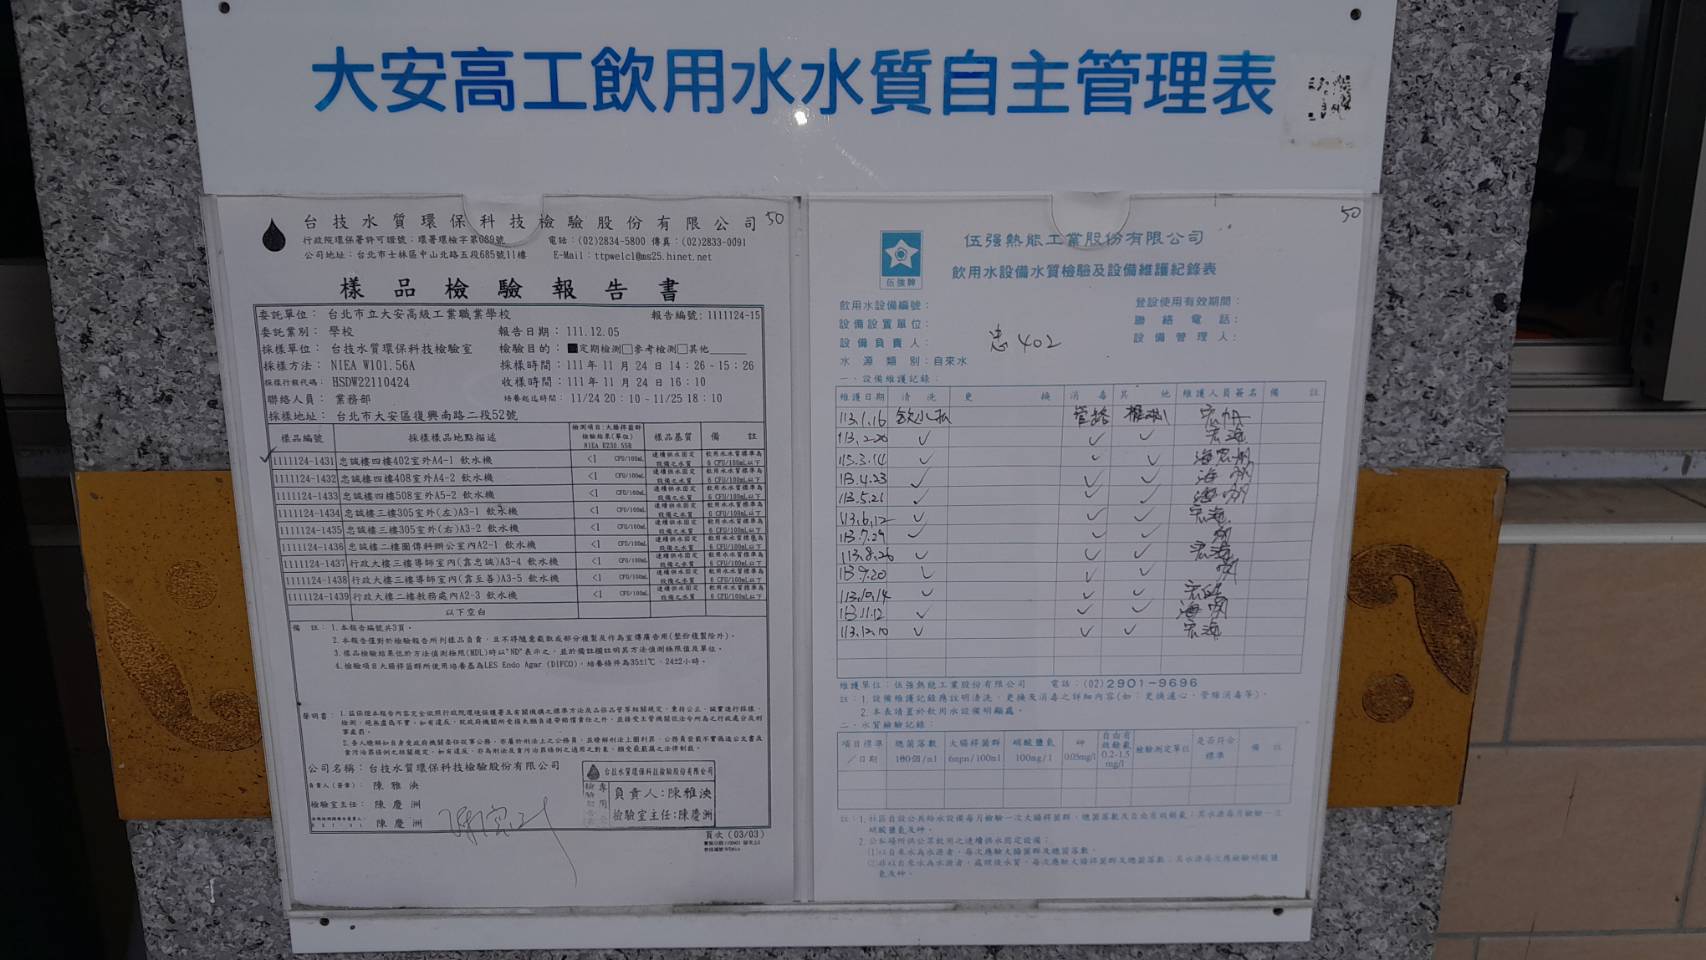 大安高工飲用水水質自主管理表
台技水質環保科技檢驗股份有限公司 50
行政院環保署許可證號：環署環檢字第089號 電話：(02)2834-5800 傳真：(02)2833-0091
公司地址：台北市士林區中山北路五段685號11樓 E-Mail：ttpwelcl@ms25.hinet.net
樣品檢驗報告書
委託單位： 台北市立大安高級工業職業學校 報告編號：1111124-15
委託業別： 學校 報告日期： 111.12.05
採樣單位： 台技水質環保科技檢驗室 檢驗目的：■定期檢測□參考檢測□其他
採樣方法： NIEA W101.56A 採樣時間：111年11月24日14：26-15：26
採樣行程代碼： HSDW22110424 收樣時間：111年11月24日16：10
聯絡人員： 業務部 培養起迄時間： 11/24 20：10-11/25 18：10
採樣地址： 台北市大安區復興南路二段52號
樣品編號 採樣樣品地點描述 檢測項目：大腸桿菌群 檢驗結果(單位) NIEA E230.55B 樣品基質 備 註
1111124-1431 忠誠樓四樓402室外A4-1 飲水機 <1 CFU/100mL 連續供水固定設備之水質 飲用水水質標準為6 CFU/100mL以下
1111124-1432 忠誠樓四樓408室外A4-2 飲水機 <1 CFU/100mL 連續供水固定設備之水質 飲用水水質標準為6 CFU/100mL以下
1111124-1433 忠誠樓四樓508室外A5-2 飲水機 <1 CFU/100mL 連續供水固定設備之水質 飲用水水質標準為6 CFU/100mL以下
1111124-1434 忠誠樓三樓305室外(左)A3-1 飲水機 <1 CFU/100mL 連續供水固定設備之水質 飲用水水質標準為6 CFU/100mL以下
1111124-1435 忠誠樓三樓305室外(右)A3-2 飲水機 <1 CFU/100mL 連續供水固定設備之水質 飲用水水質標準為6 CFU/100mL以下
1111124-1436 忠誠樓二樓圖傳科辦公室內A2-1 飲水機 <1 CFU/100mL 連續供水固定設備之水質 飲用水水質標準為6 CFU/100mL以下
1111124-1437 行政大樓三樓導師室內(靠忠誠)A3-4 飲水機 <1 CFU/100mL 連續供水固定設備之水質 飲用水水質標準為6 CFU/100mL以下
1111124-1438 行政大樓三樓導師室內(靠至善)A3-5 飲水機 <1 CFU/100mL 連續供水固定設備之水質 飲用水水質標準為6 CFU/100mL以下
1111124-1439 行政大樓二樓教務處內A2-3 飲水機 <1 CFU/100mL 連續供水固定設備之水質 飲用水水質標準為6 CFU/100mL以下
以下空白
備 註：1.本報告編號共3頁。
2.本報告僅對於檢驗報告所列樣品負責，且不得隨意截取或部分複製及作為宣傳廣告用(整份複製除外)。
3.樣品檢驗結果低於方法偵測極限(MDL)時以"ND"表示之，並於備註欄註明其方法偵測極限值及單位。
4.檢驗項目大腸桿菌群所使用培養基為LES Endo Agar (DIFCO)，培養條件為35±1℃、24±2小時。
公司名稱：台技水質環保科技檢驗股份有限公司
負責人(簽章)： 陳雅泱
檢驗室主任： 陳慶洲
陳慶洲
台技水質環保科技檢驗股份有限公司
負責人：陳雅泱
檢驗室主任：陳慶洲
頁次(03/03)
50
伍強牌
伍強熱能工業股份有限公司
飲用水設備水質檢驗及設備維護紀錄表
飲用水設備編號： 登設使用有效期間：
設備設置單位： 聯絡電話：
設備負責人： 忠402 設備管理人：
水源類別：自來水
一、設備維護記錄：
維護日期 清洗 更換 消毒 其他 維護人員簽名 備註
113.1.16 管路
113.2.20 ✓ ✓ ✓
113.3.14 ✓ ✓ ✓
113.4.23 ✓ ✓ ✓
113.5.21 ✓ ✓ ✓
113.6.12 ✓ ✓ ✓
113.7.29 ✓ ✓ ✓
113.8.26 ✓ ✓ ✓
113.9.20 ✓ ✓ ✓
113.10.14 ✓ ✓ ✓
113.11.12 ✓ ✓ ✓
113.12.10 ✓ ✓ ✓
維護單位：伍強熱能工業股份有限公司 電話：(02)2901-9696
註：1.設備維護記錄應註明清洗、更換及消毒之詳細內容(如：更換濾心、管線消毒等)。
2.本表請置於飲用水設備明顯處。
二、水質檢驗記錄：
項目標準／日期 總菌落數 100個/ml 大腸桿菌群 6mpn/100ml 硝酸鹽氮 100mg/l 砷 0.05mg/l 自由有效餘氯 0.2-1.5 mg/l 檢驗測定單位 是否符合標準 備註
2.公私場所供公眾飲用之連續供水固定設備：
(1)以自來水為水源者，每次應驗大腸菌群及總菌落數。